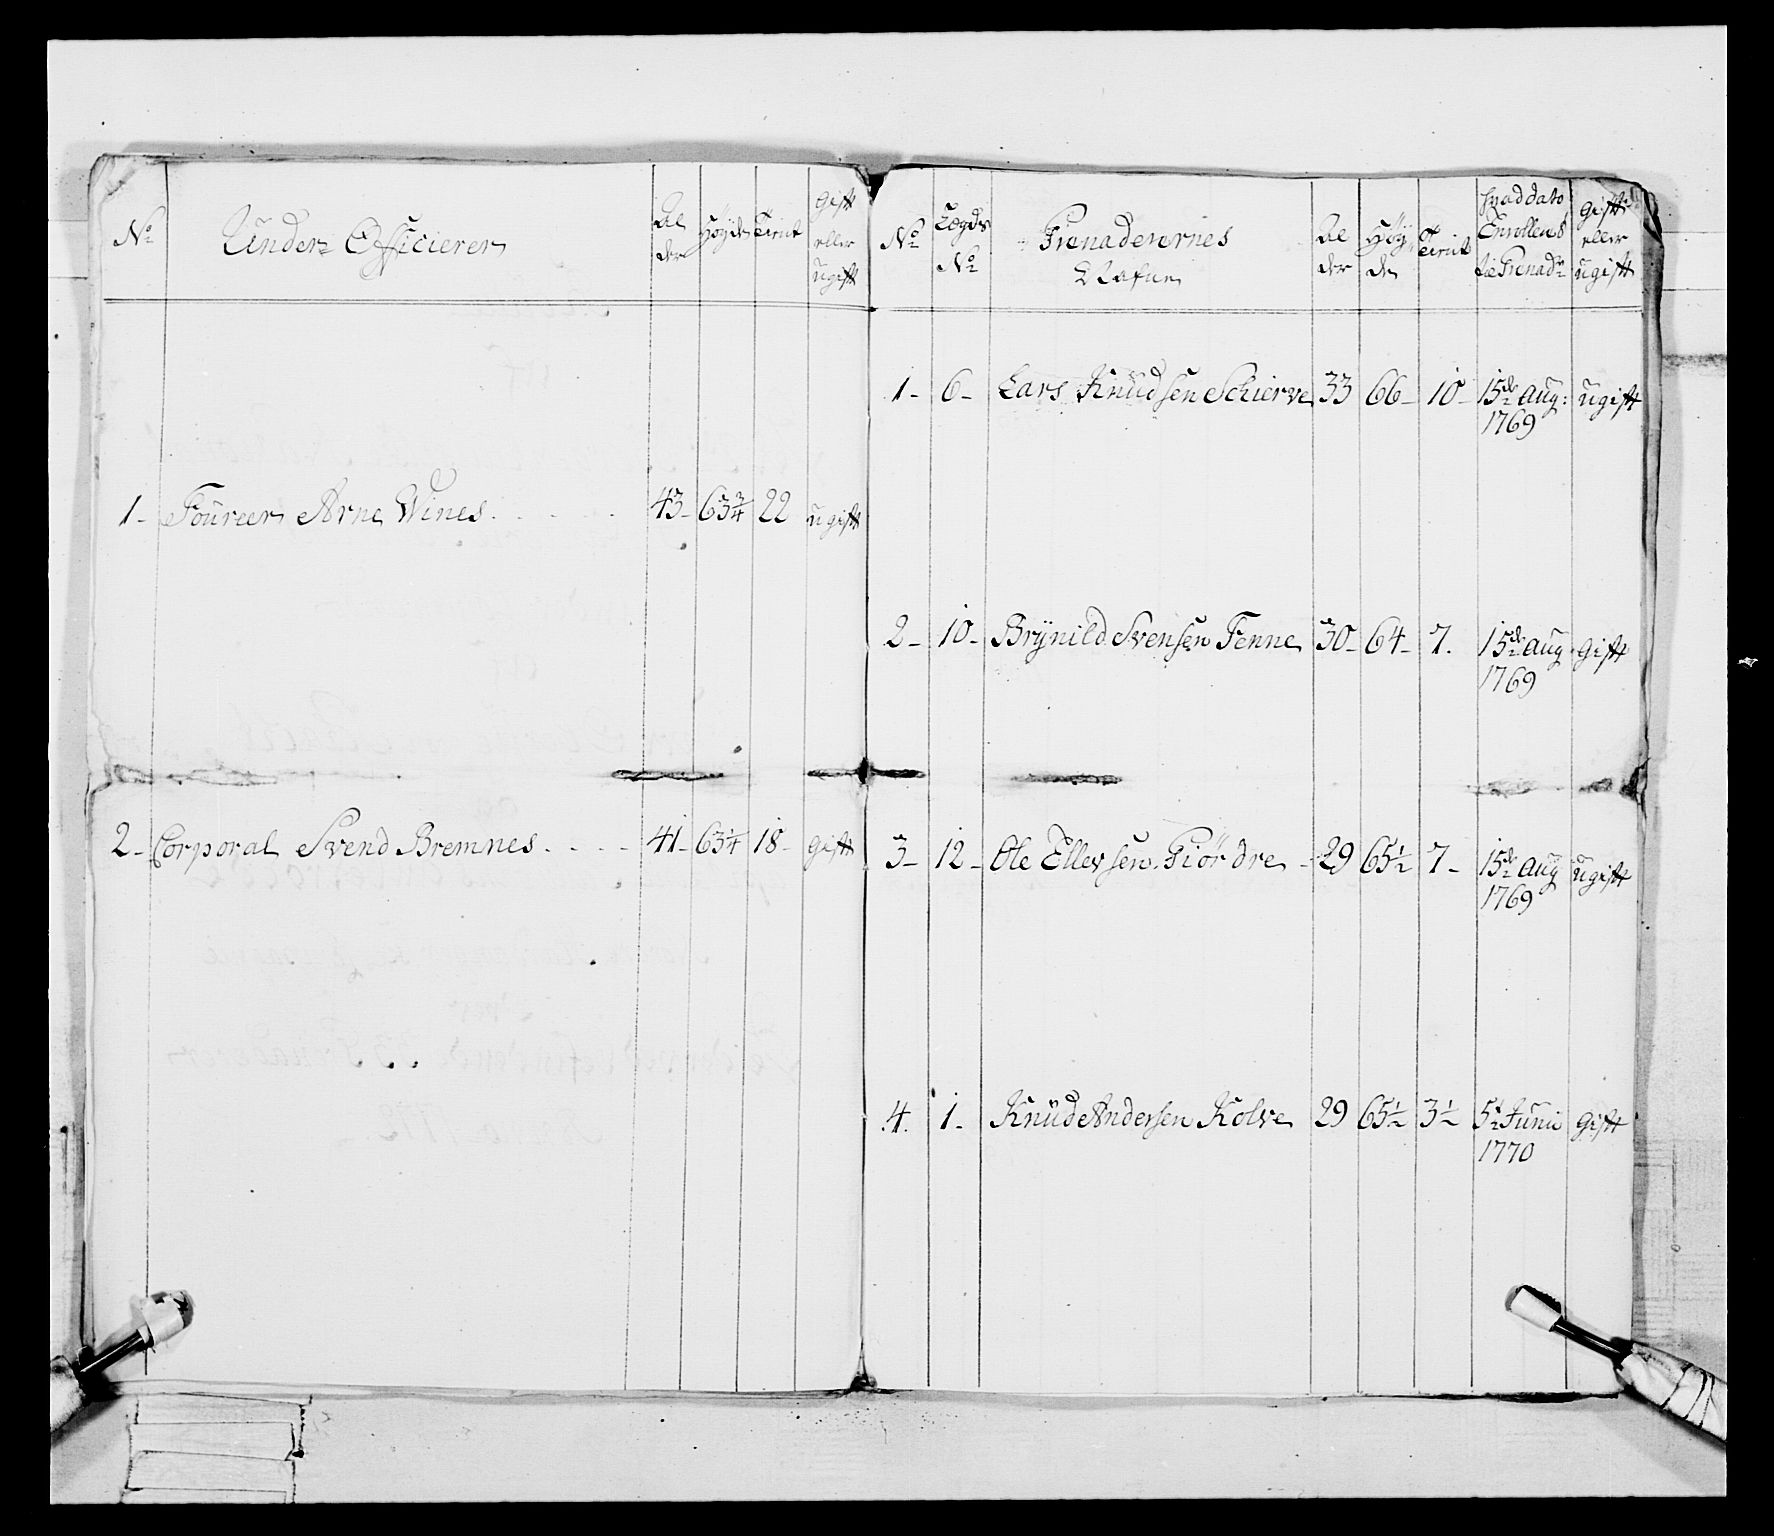 No
Under Officierer
Al
der
Høyde
Tieni
Gift
eller
ugift
1- Foureer Arne Wines. 43- 63¾ 22 ugift
2- Corporal Svend Bremnes. 41- 63¼ 18- Gift
No
Lægds
No
Grenaderernes
Nafne
Al
der
Høy
de
Tieni
hvad dato
Enrollerd
til Grenadr
Gift
eller
ugift
1- 6- Lars Knudsen Schierve 33 66- 10- 15de aug:
1769 ugift
2- 10- Brÿnild Svensen Fenne 30- 64- 7. 15de aug
1769 Gift
3- 12- Ole Ellevsen Giördre 29 65½ 7- 15de aug
1769 ugift
4. 1- Knud Andersen Kolve 29 65½ 3½ 5t Juni
1770 Gift